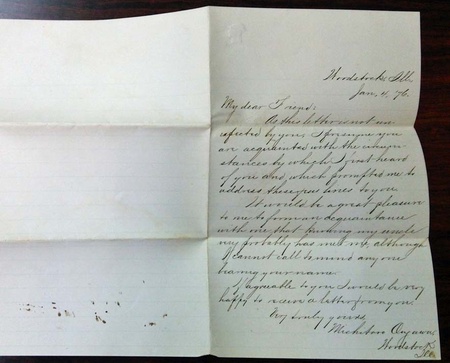 Woodstock, Ill.
Jan. 4, 76.
My dear Friend:
As this letter is not un
expected by you, I presume you
are acquainted with the circum
stances by which I first heard
of you and which prompted me to
address these few lines to you.
It would be a great pleasure
to me to form an acquaintance
with one that knowing my uncle
very probably has met me, although
I cannot call to mind any one
bearing your name.
If agreeable to you I would be very
happy to receive a letter from you.
Very truly yours,
Woodstock,
Ill.